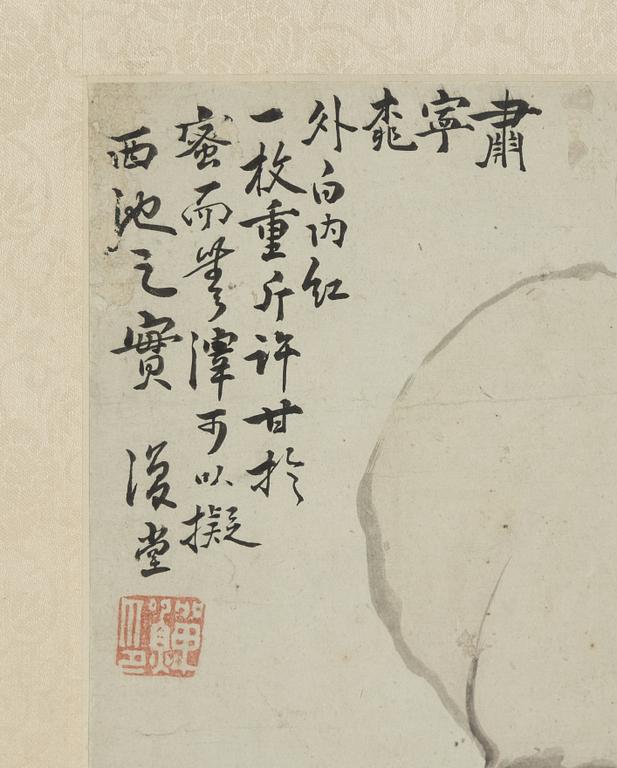 肅寧桃
外白内紅
一枚重斤許甘於
蜜而無滓可以擬
西池之實 復堂